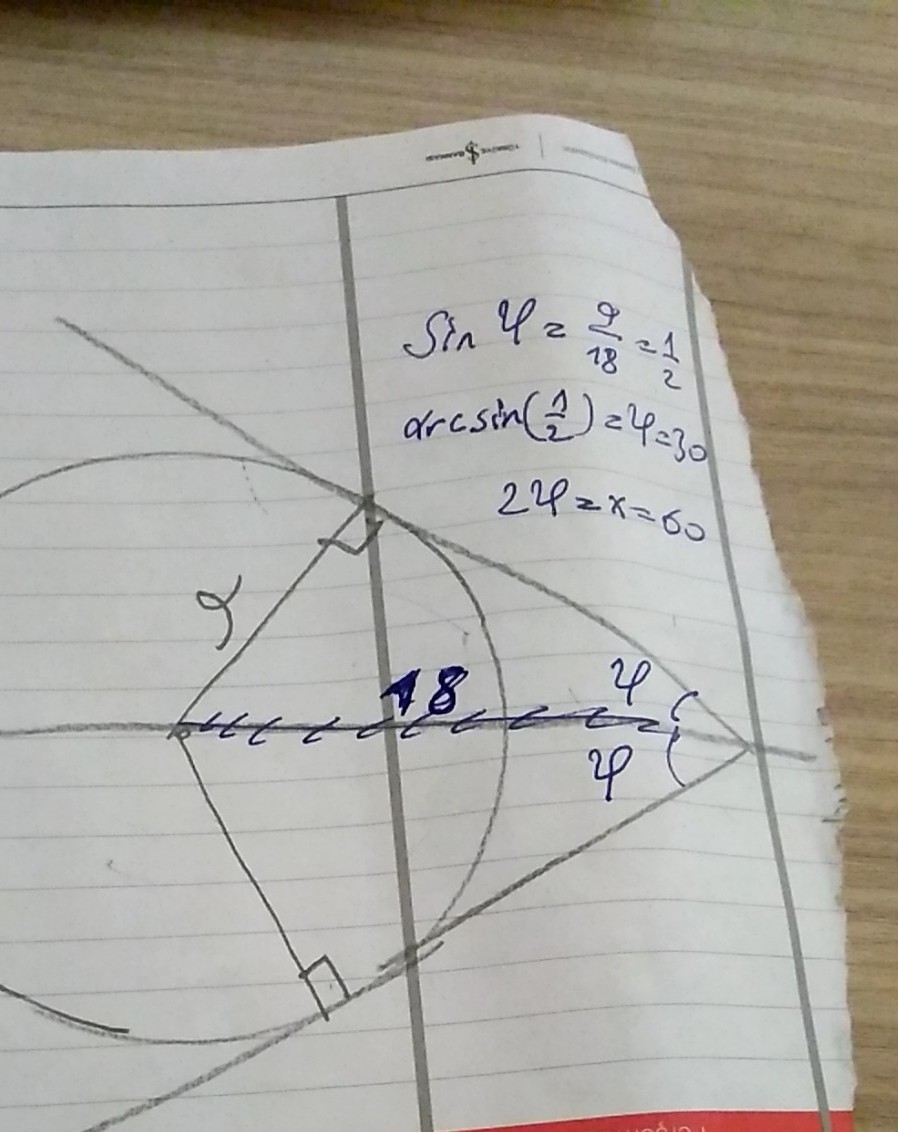 Sin φ = 9/18 = 1/2
arcsin(1/2) = φ = 30
2φ = x = 60
9
18
φ
φ